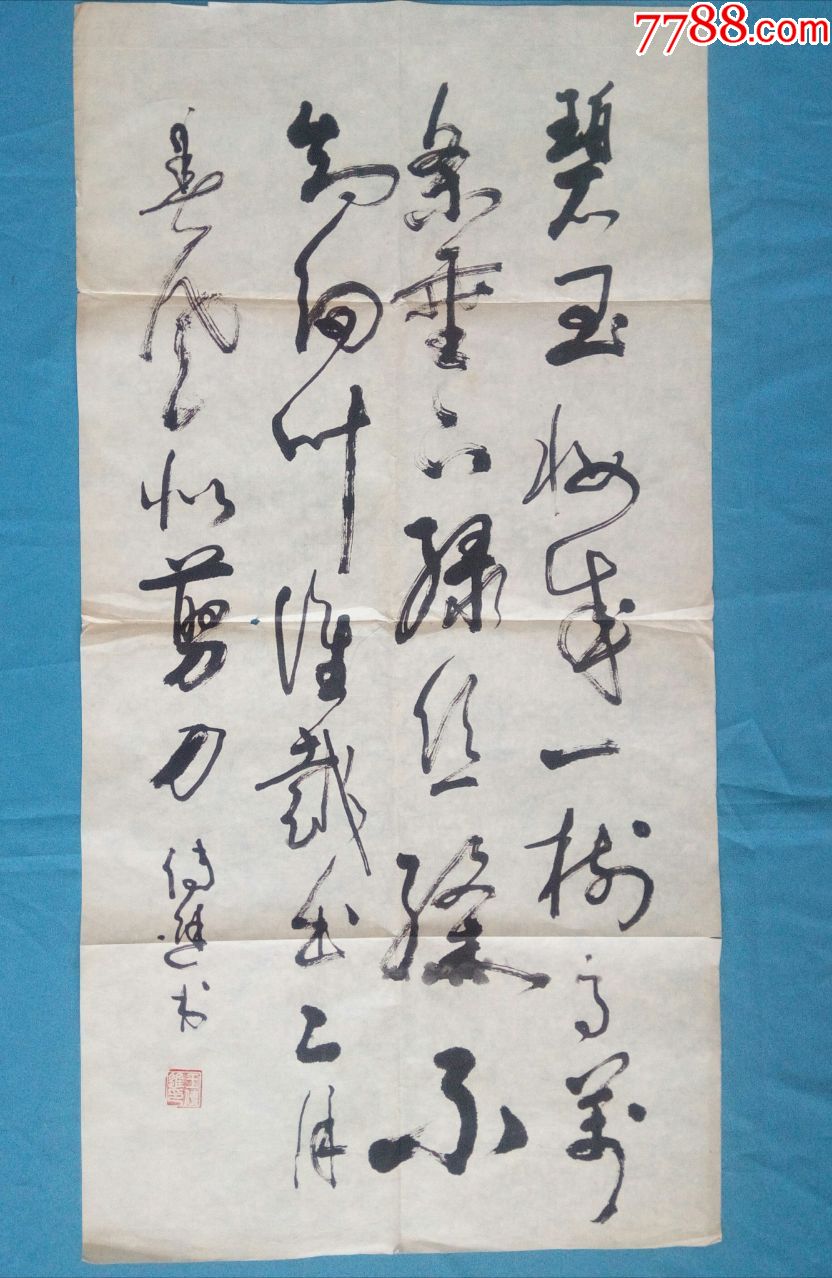 7788.com
碧玉妝成一樹高萬
条垂下綠丝絛不
知細叶谁裁出二月
春风似剪刀
傳進书